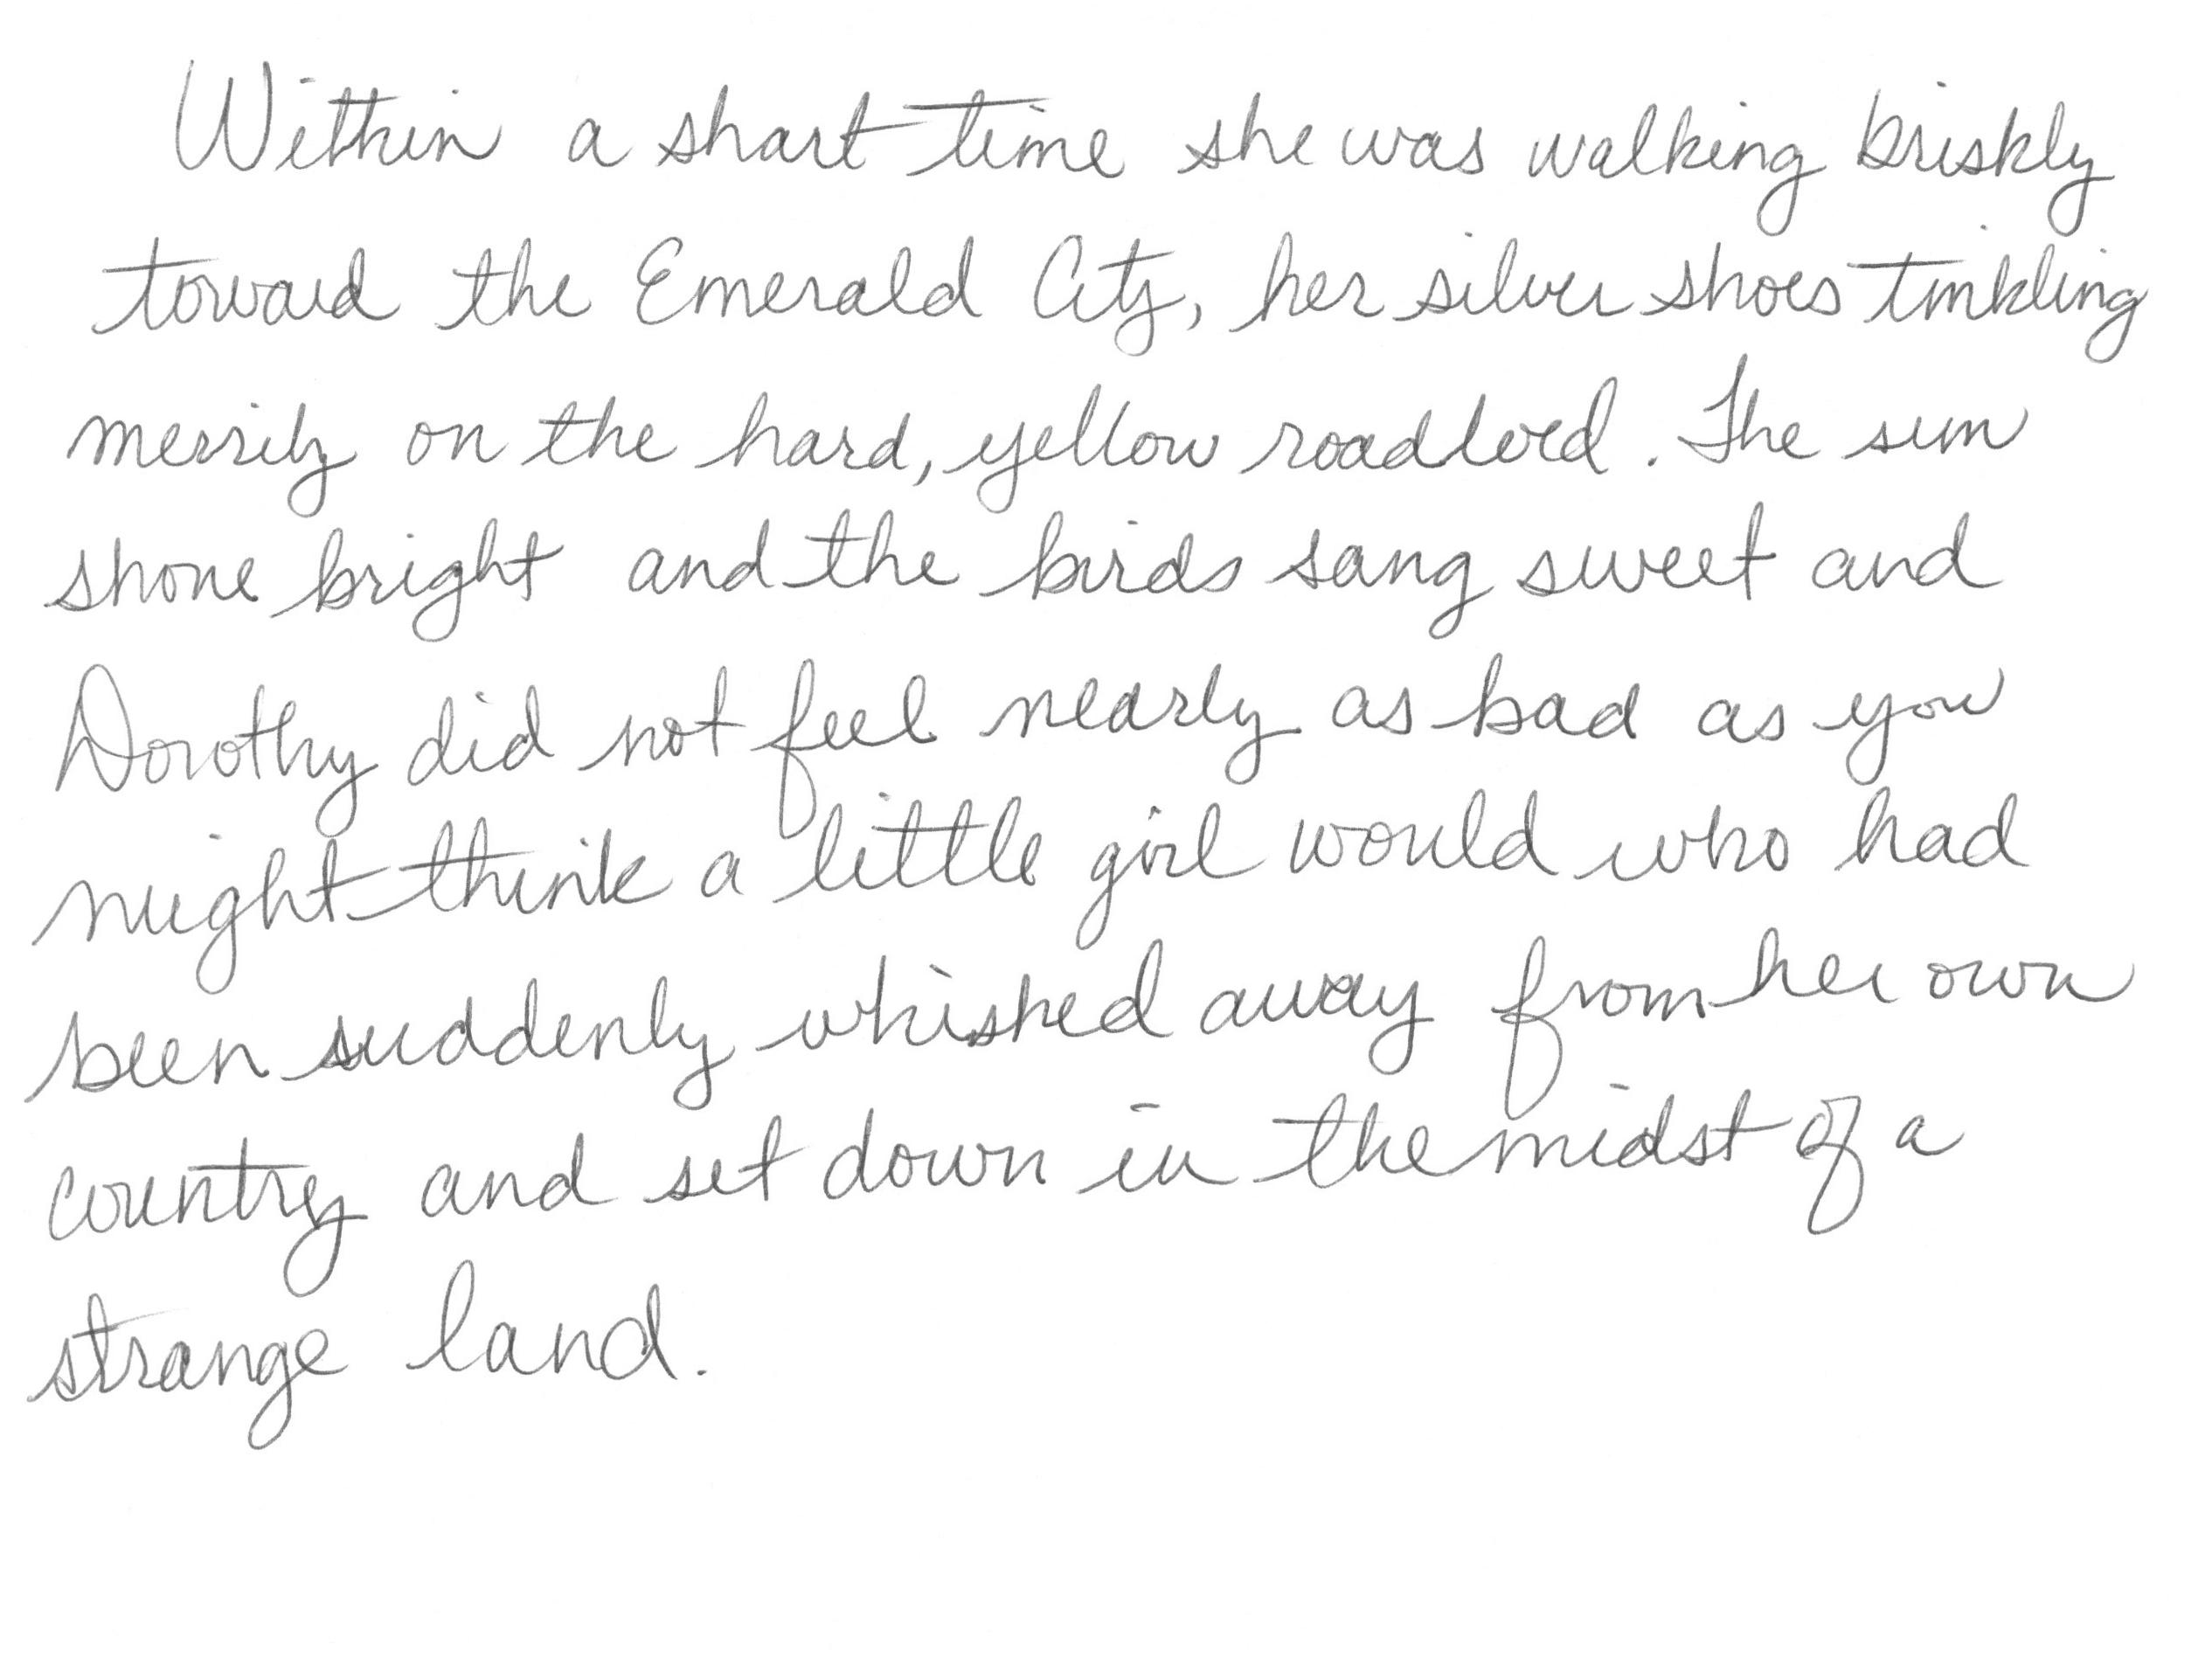 Within a short time she was walking briskly
toward the Emerald City, her silver shoes tinkling
merrily on the hard, yellow roadbed. The sun
shone bright and the birds sang sweet and
Dorothy did not feel nearly as bad as you
might think a little girl would who had
been suddenly whisked away from her own
country and set down in the midst of a
strange land.